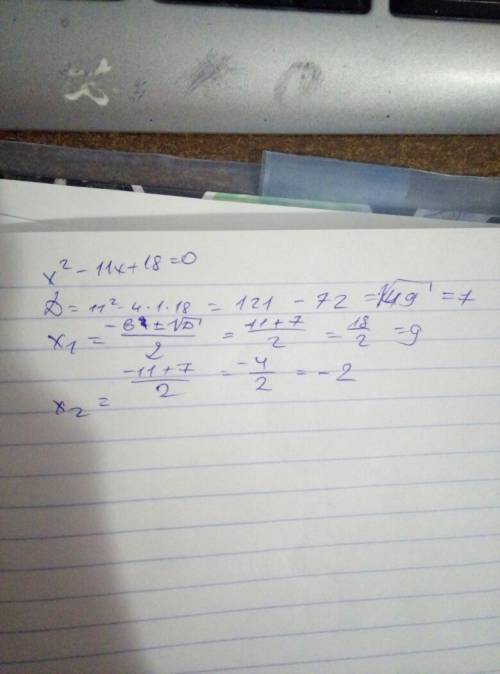 x² - 11x + 18 = 0
D = 11² - 4 · 1 · 18 = 121 - 72 = √49 = 7
x₁ = (-b ± √D)/2 = (11 + 7)/2 = 18/2 = 9
x₂ = (-11 + 7)/2 = -4/2 = -2